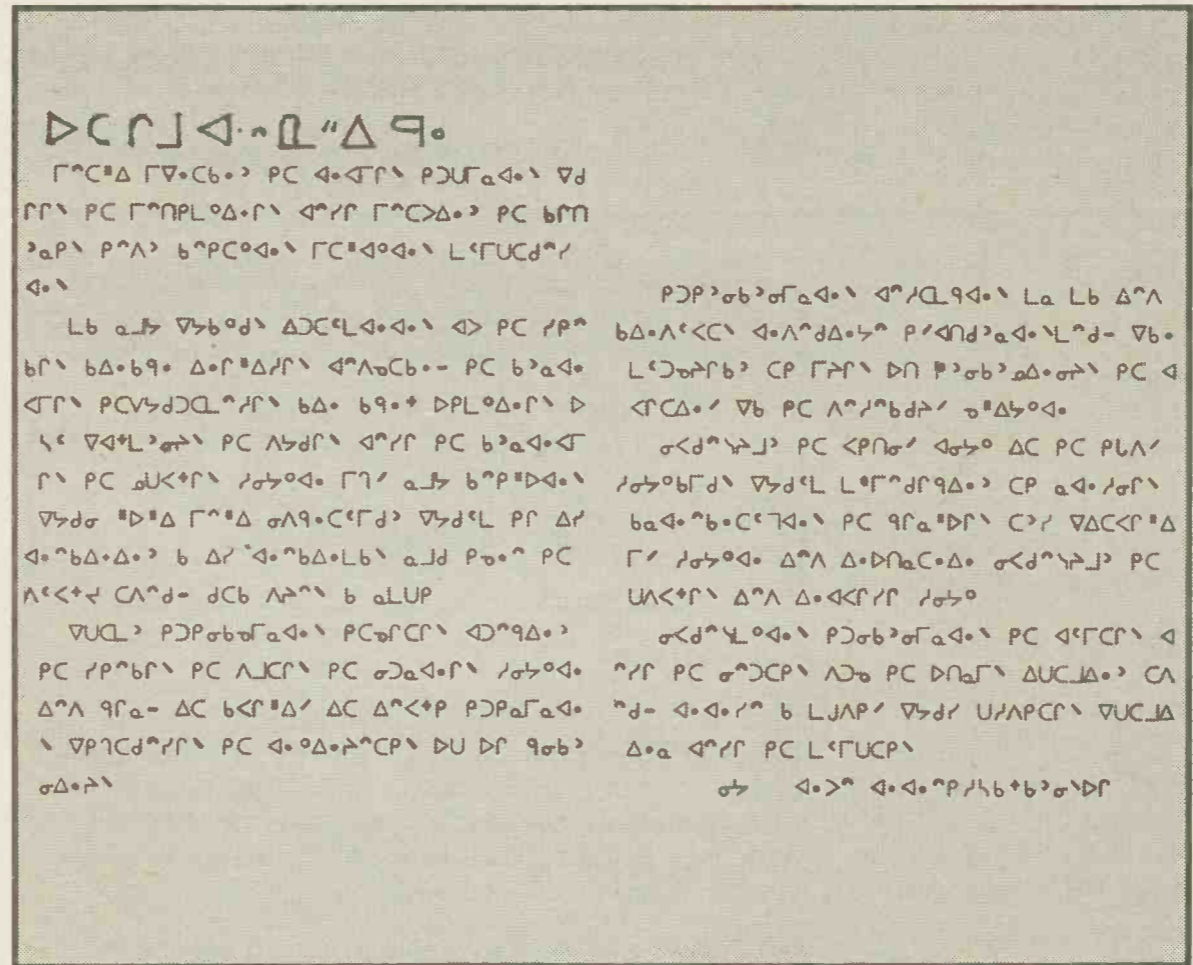 ᐅᑕᒋᒧᐊᐧᐣᓇᐦᐃᑫᐤ
ᒥᐢᑕᐦᐃ ᒥᐁᐧᑕᑲᐧᐣ ᑭᑕ ᐊᐧᐊᒥᒋᐠ ᑭᑐᑌᒥᓇᐊᐧᐠ ᐁᑯ
ᒋᒋᐠ ᑭᑕ ᒥᐢᑎᑭᒪᐤᐃᐧᒋᐠ ᐊᐢᓯᒋ ᒥᐢᑕᐳᐃᐧᐣ ᑭᑕ ᑲᒋᑎ
ᐣᓇᑭᐠ ᑭᐢᐱᐣ ᑲᐢᑭᑕᐤᐊᐧᐠ ᒥᑕᐦᐊᐤᐊᐧᐠ ᒪᑊᒥᑌᑕᑯᐢᓯ
ᐊᐧᐠ
ᒪᑲ ᓇᒨᔭ ᐁᔭᑲᐤᑯᐠ ᐃᑐᑕᑊᒪᐊᐧᐊᐧᐠ ᐊᐳ ᑭᑕ ᓯᑭᐢ
ᑲᒋᐠ ᑲᐃᐧᑲᑫᐧ ᐃᐧᒋᐦᐃᓯᒋᐠ ᐊᐢᐱᓀᑕᑲᐧ ᑭᑕ ᑲᐣᓇᐊᐧ
ᐊᒥᒋᐠ ᑭᑕᐯᔭᑯᑐᑕᓇᐢᓯᒋᐠ ᑲᐃᐧ ᑲᑫᐧᕀ ᐅᑭᒪᐤᐃᐧᒋᐠ ᐅ
ᓴᑊ ᐁᐊᕀᒪᐣᓂᔨᐠ ᑭᑕ ᐱᔭᑯᒋᐠ ᐊᐢᓯᒋ ᑭᑕ ᑲᐣᓇᐊᐧᐊᒥ
ᒋᐠ ᑭᑕ ᓄᑌᐸᕀᒋᐠ ᓱᓂᔭᐤᐊᐧ ᒥᒉᐟ ᓇᒨᔭ ᑲᐢᑭᐦᐅᐊᐧᐠ
ᐁᔭᑯᓂ ᐦᐅᐦᐃ ᒥᐢᐦᐃ ᓂᐱᑫᐧᑕᑊᒥᑯᐣ ᐁᔭᑯᑊᒪ ᑭᒋ ᐃᓯ
ᐊᐧᐢᑲᐃᐧᐃᐧᐣ ᑲ ᐃᓯ ᐊᐧᐢᑲᐃᐧᒪᑲᐠ ᓇᒧᑯ ᑭᓀᐧᐢ ᑭᑕ
ᐱᑊᐸᕀᔪ ᑕᐱᐢᑯ ᑯᑕᑲ ᐱᓯᐢᐠ ᑲ ᓇᒪᑌᑭ
ᐁᑌᑕᓇᐣ ᑭᑐᑭᓂᑲᓀᒥᓇᐊᐧᐠ ᑭᑕᓀᒋᑕᒋᐠ ᐊᑐᐢᑫᐃᐧᐣ
ᑭᑕ ᓯᑭᐢᑲᒋᐠ ᑭᑕ ᐱᒧᑕᒋᐠ ᑭᑕ ᓂᑐᓇᐊᐧᒋᐠ ᓱᓂᔭᐤᐊᐧ
ᐃᐢᐱ ᑫᒋᓇ ᐃᑕ ᑲᐸᒋᐦᐃᐟ ᐃᑕ ᐃᐢᐸᕀᑭ ᑭᑐᑭᓇᒥᓇᐊᐧ
ᐠ ᐁᑭᒉᑕᑯᐢᓯᒋᐠ ᑭᑕ ᐊᐧᐤᐃᐧᔨᐢᑕᑭᐠ ᐅᑌ ᐅᒋ ᑫᓂᑲᐣ
ᓂᐃᐧᔨᐠ
ᑭᑐᑭᐣᓂᑲᐣᓂᒥᓇᐊᐧᐠ ᐊᐢᓱᑕᓇᑫᐊᐧᐠ ᒪᓇ ᒪᑲ ᐃᐢᐱ
ᑲᐃᐧᐱᑊᐸᑕᐠ ᐊᐧᐱᐢᑯᐃᐧᔭᐢ ᑭᐟᐊᑎᑯᐣᓇᐊᐧᐠᒪᐢᑯ ᐁᑲᐧ
ᒪᑊᑐᓀᔨᒋᑲᐣ ᑕᑭ ᒥᔨᒋᐠ ᐅᑎ ᑭᐣᓂᑲᐣᓄᐃᐧᓂᔨᐠ ᑭᑕ ᐊ
ᐸᒋᑕᐃᐧᐟ ᐁᑲ ᑭᑕ ᐱᐢᓯᐦᑲᑯᔨᐟ ᓀᐦᐃᔭᐤᐊᐧ
ᓂᐸᑯᐢᓭᔨᒧᐣ ᑭᑕ ᐸᑭᑎᓂᐟ ᐊᓂᔭᐤ ᐃᑕ ᑭᑕ ᑭᒐᐱᐟ
ᓱᓂᔭᐤᑲᒥᑯᐠ ᐁᔭᑯᑊᒪ ᒪᐦᒥᐢᑯᒋᑫᐃᐧᐣ ᑕᑭ ᓇᐊᐧᓱᓂᒋᐠ
ᑲᓇᐊᐧᐢᑲᐧᑕᑊᒉᐊᐧᐠ ᑭᑕ ᑫᒋᓇᐦᐅᒋᐠ ᑕᐣᓯ ᐁᐃᑕᐸᒋᐦᐃ
ᒥᐟ ᓱᓂᔭᐤᐊᐧ ᐃᐢᐱ ᐃᐧᐅᑎᓇᑕᐧᐃᐧ ᓂᐸᑯᐢᓭᔨᒧᐣ ᑭᑕ
ᑌᐱᐸᕀᒋᐠ ᐃᐢᐱ ᐃᐧᐊᐸᒋᓯᒋ ᓱᓂᔭᐤ
ᓂᐸᑯᐢᓭᒪᐤᐊᐧᐠ ᑭᑐᓂᑲᐣᓂᒥᓇᐊᐧᐠ ᑭᑕ ᐊᑊᒥᑕᒋᐠ ᐊ
ᐢᓯᒋ ᑭᑕ ᓂᐢᑐᑕᑭᐠ ᐱᑐᓀ ᑭᑕ ᐅᑎᓇᒥᐠ ᐃᑌᑕᒧᐃᐧᐣ ᑕᐱ
ᐢᑯ ᐊᐧᐊᐧᓯᐢ ᑲ ᒪᒍᐱᑭᐟ ᐁᔭᑯᓯ ᑌᓯᐱᑭᑕᒋᐠ ᐁᑌᑕᒧᐃ
ᐃᐧᓇ ᐊᐢᓯᒋ ᑭᑕ ᒪᑊᒥᑌᑕᑭᐠ
ᓂᔭ ᐊᐧᐳᐢ ᐊᐧᐊᐧᐢᑭᓯᓴᑲᕀᑲᐣᓂᐠᐅᒋ